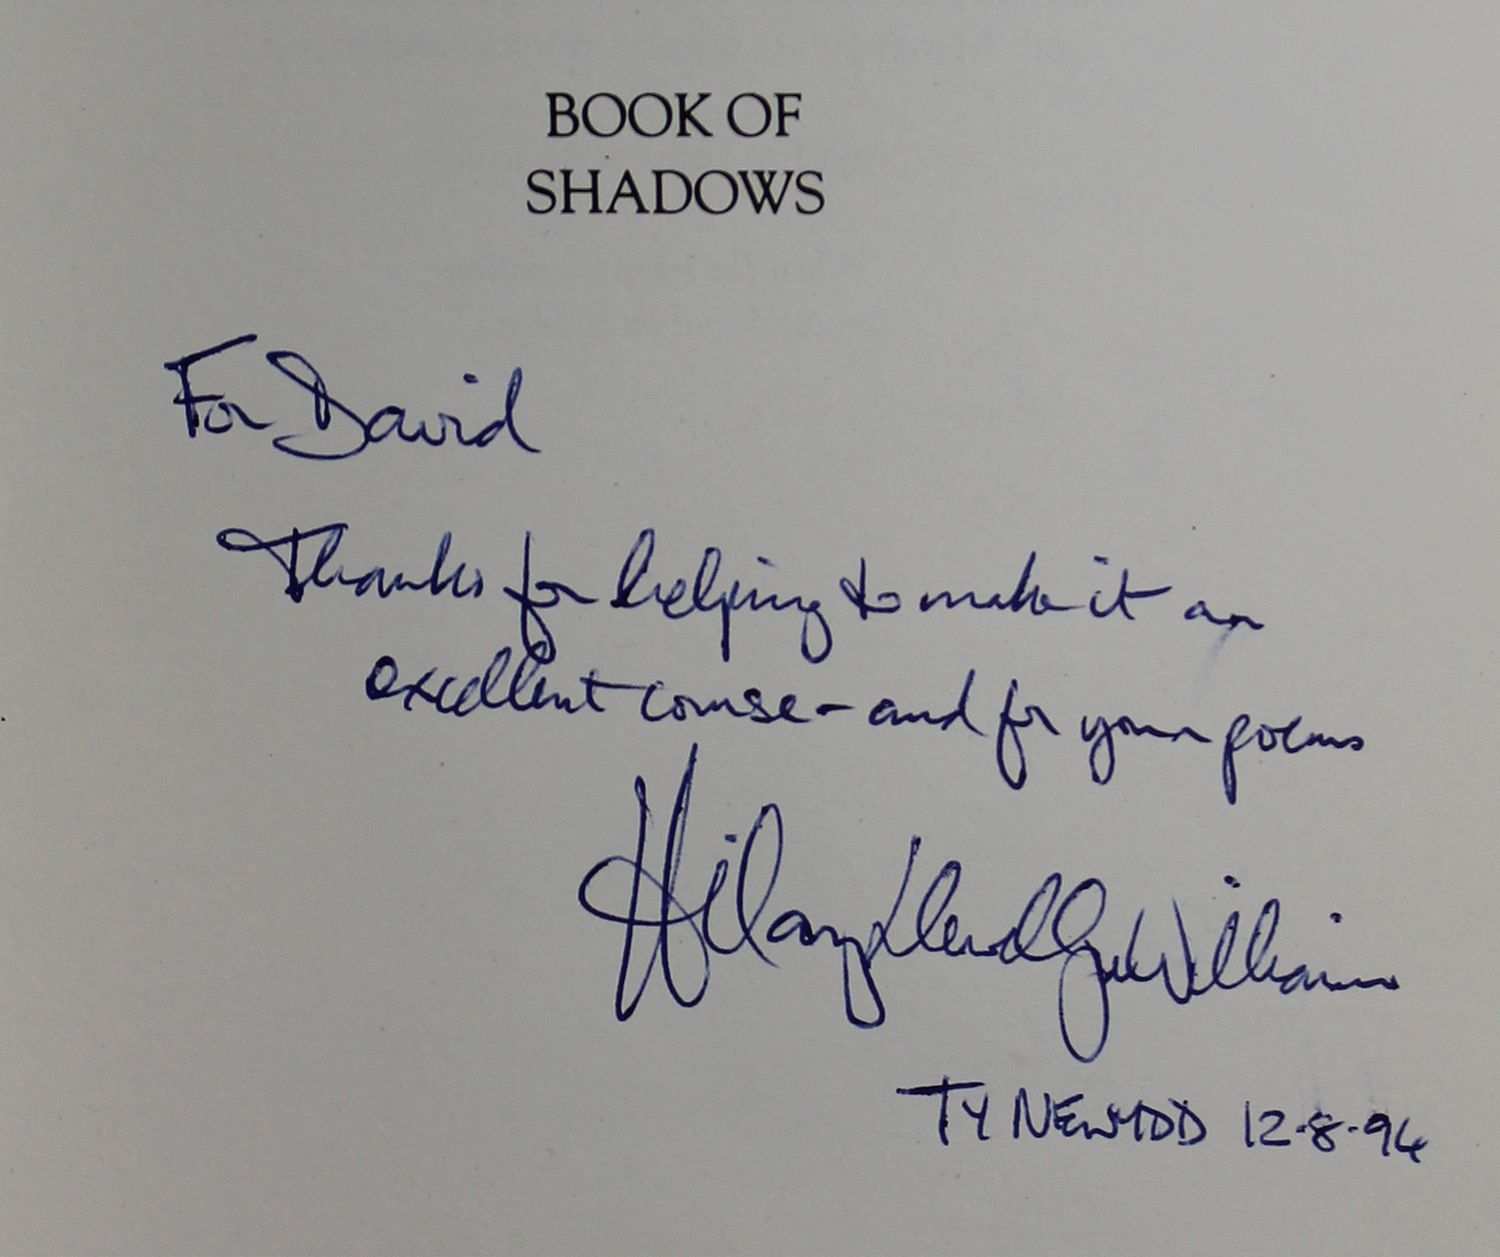 BOOK OF
SHADOWS
For David
Thanks for helping to make it an
excellent course - and for your poems
Hilary Llewellyn Williams
TY NEWYDD 12.8.94